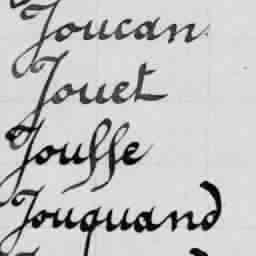 Joucan
Jouet
Jousse
Jouquand